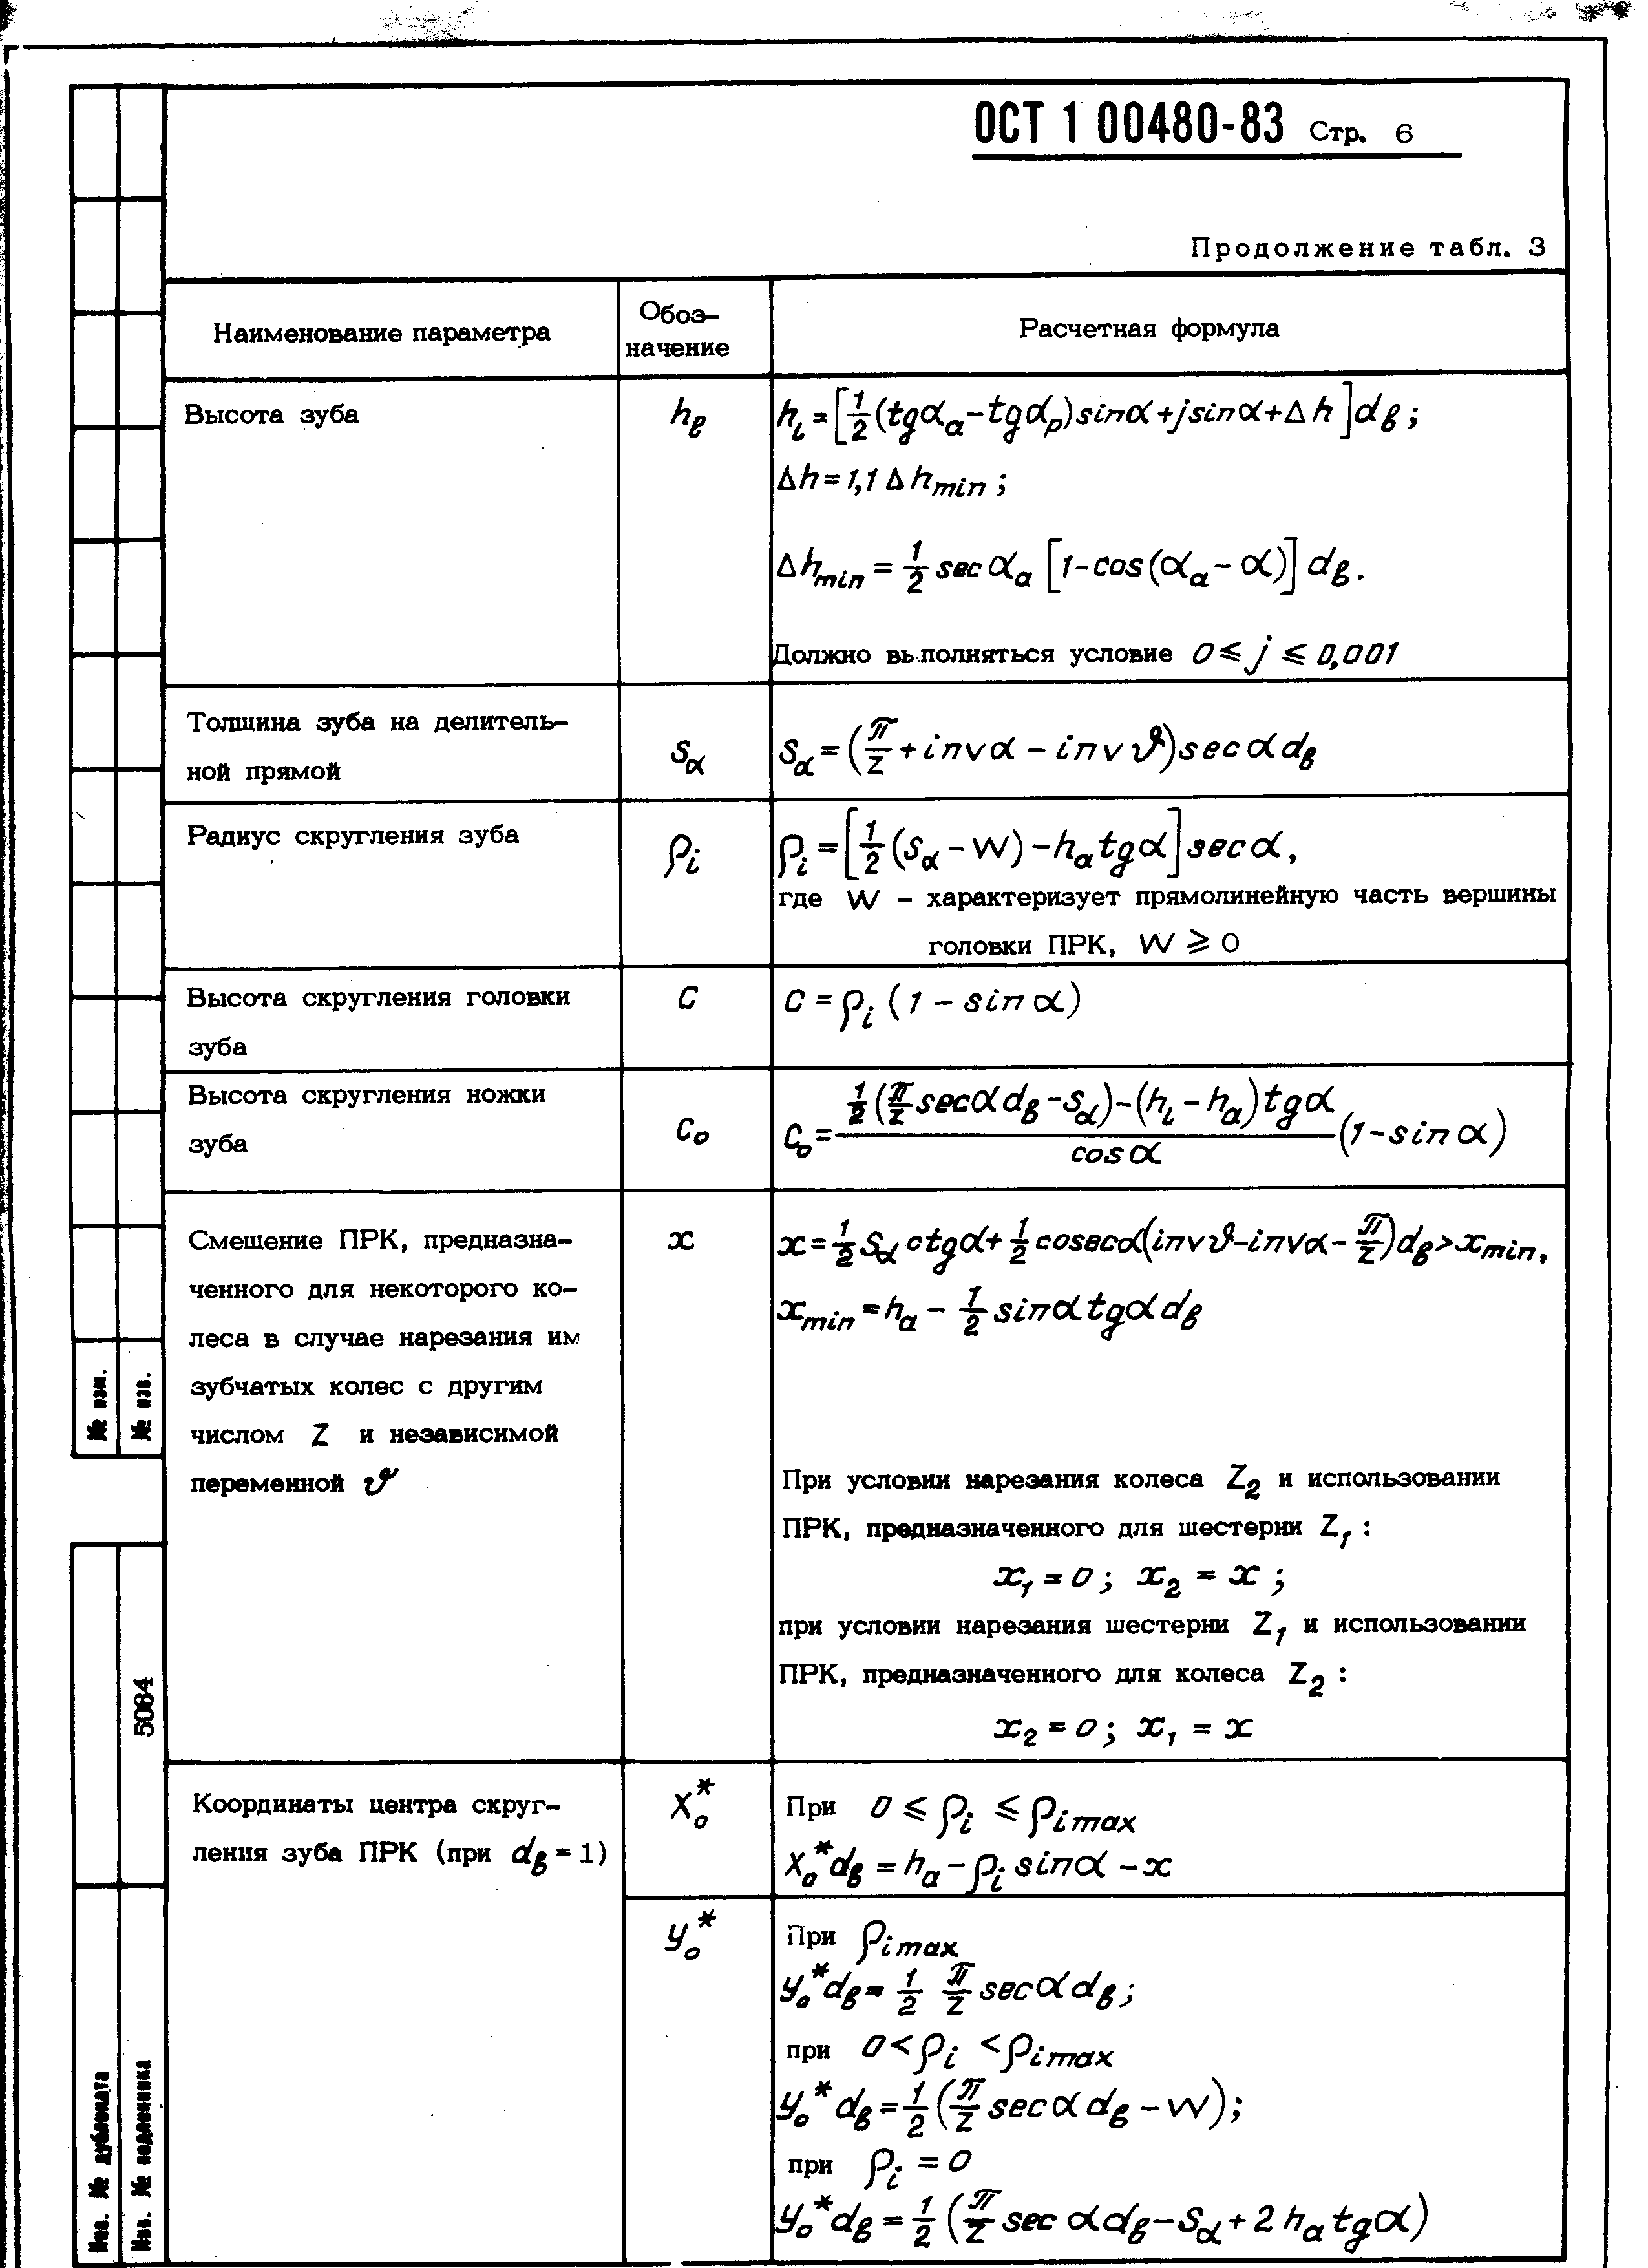 ОСТ 1 00480-83 Стр. 6
Продолжение табл. 3
Наименование параметра
Обоз-
начение
Расчетная формула
Высота зуба
h_ℓ
h_i = [1/2 (tgα_a - tgα_p) sinα + j sinα + Δh] d_в;
Δh = 1,1 Δh_min;
Δh_min = 1/2 sec α_a [1 - cos(α_a - α)] d_в.
Должно выполняться условие 0 ≤ j ≤ 0,001
Толщина зуба на делитель-
ной прямой
S_α
S_α = (π/z + inv α - inv ϑ) sec α d_в
Радиус скругления зуба
ρ_i
ρ_i = [1/2 (S_α - W) - h_a tgα] sec α,
где W - характеризует прямолинейную часть вершины
головки ПРК, W ⩾ 0
Высота скругления головки
зуба
C
C = ρ_i (1 - sin α)
Высота скругления ножки
зуба
C_o
C_o = (1/2 (π/z sec α d_в - S_α) - (h_i - h_a) tgα)/cos α (1 - sin α)
Смещение ПРК, предназна-
ченного для некоторого ко-
леса в случае нарезания им
зубчатых колес с другим
числом Z и независимой
переменной ϑ
x
x = 1/2 S_α ctgα + 1/2 cosec α (inv ϑ - inv α - π/z) d_в > x_min,
x_min = h_a - 1/2 sin α tgα d_в
При условии нарезания колеса Z_2 и использовании
ПРК, предназначенного для шестерни Z_1 :
x_1 = 0 ; x_2 = x ;
при условии нарезания шестерни Z_1 и использовании
ПРК, предназначенного для колеса Z_2 :
x_2 = 0 ; x_1 = x
Координаты центра скруг-
ления зуба ПРК (при d_в = 1)
X_o^*
При 0 ⩽ ρ_i ⩽ ρ_i max
X_o^* d_в = h_a - ρ_i sin α - x
y_o^*
При ρ_i max
y_o^* d_в = 1/2 π/z sec α d_в;
при 0 < ρ_i < ρ_i max
y_o^* d_в = 1/2 (π/z sec α d_в - W);
при ρ_i = 0
y_o^* d_в = 1/2 (π/z sec α d_в - S_α + 2 h_a tgα)
№ изм.
№ изв.
5084
Инв. № дубликата
Инв. № подлинника